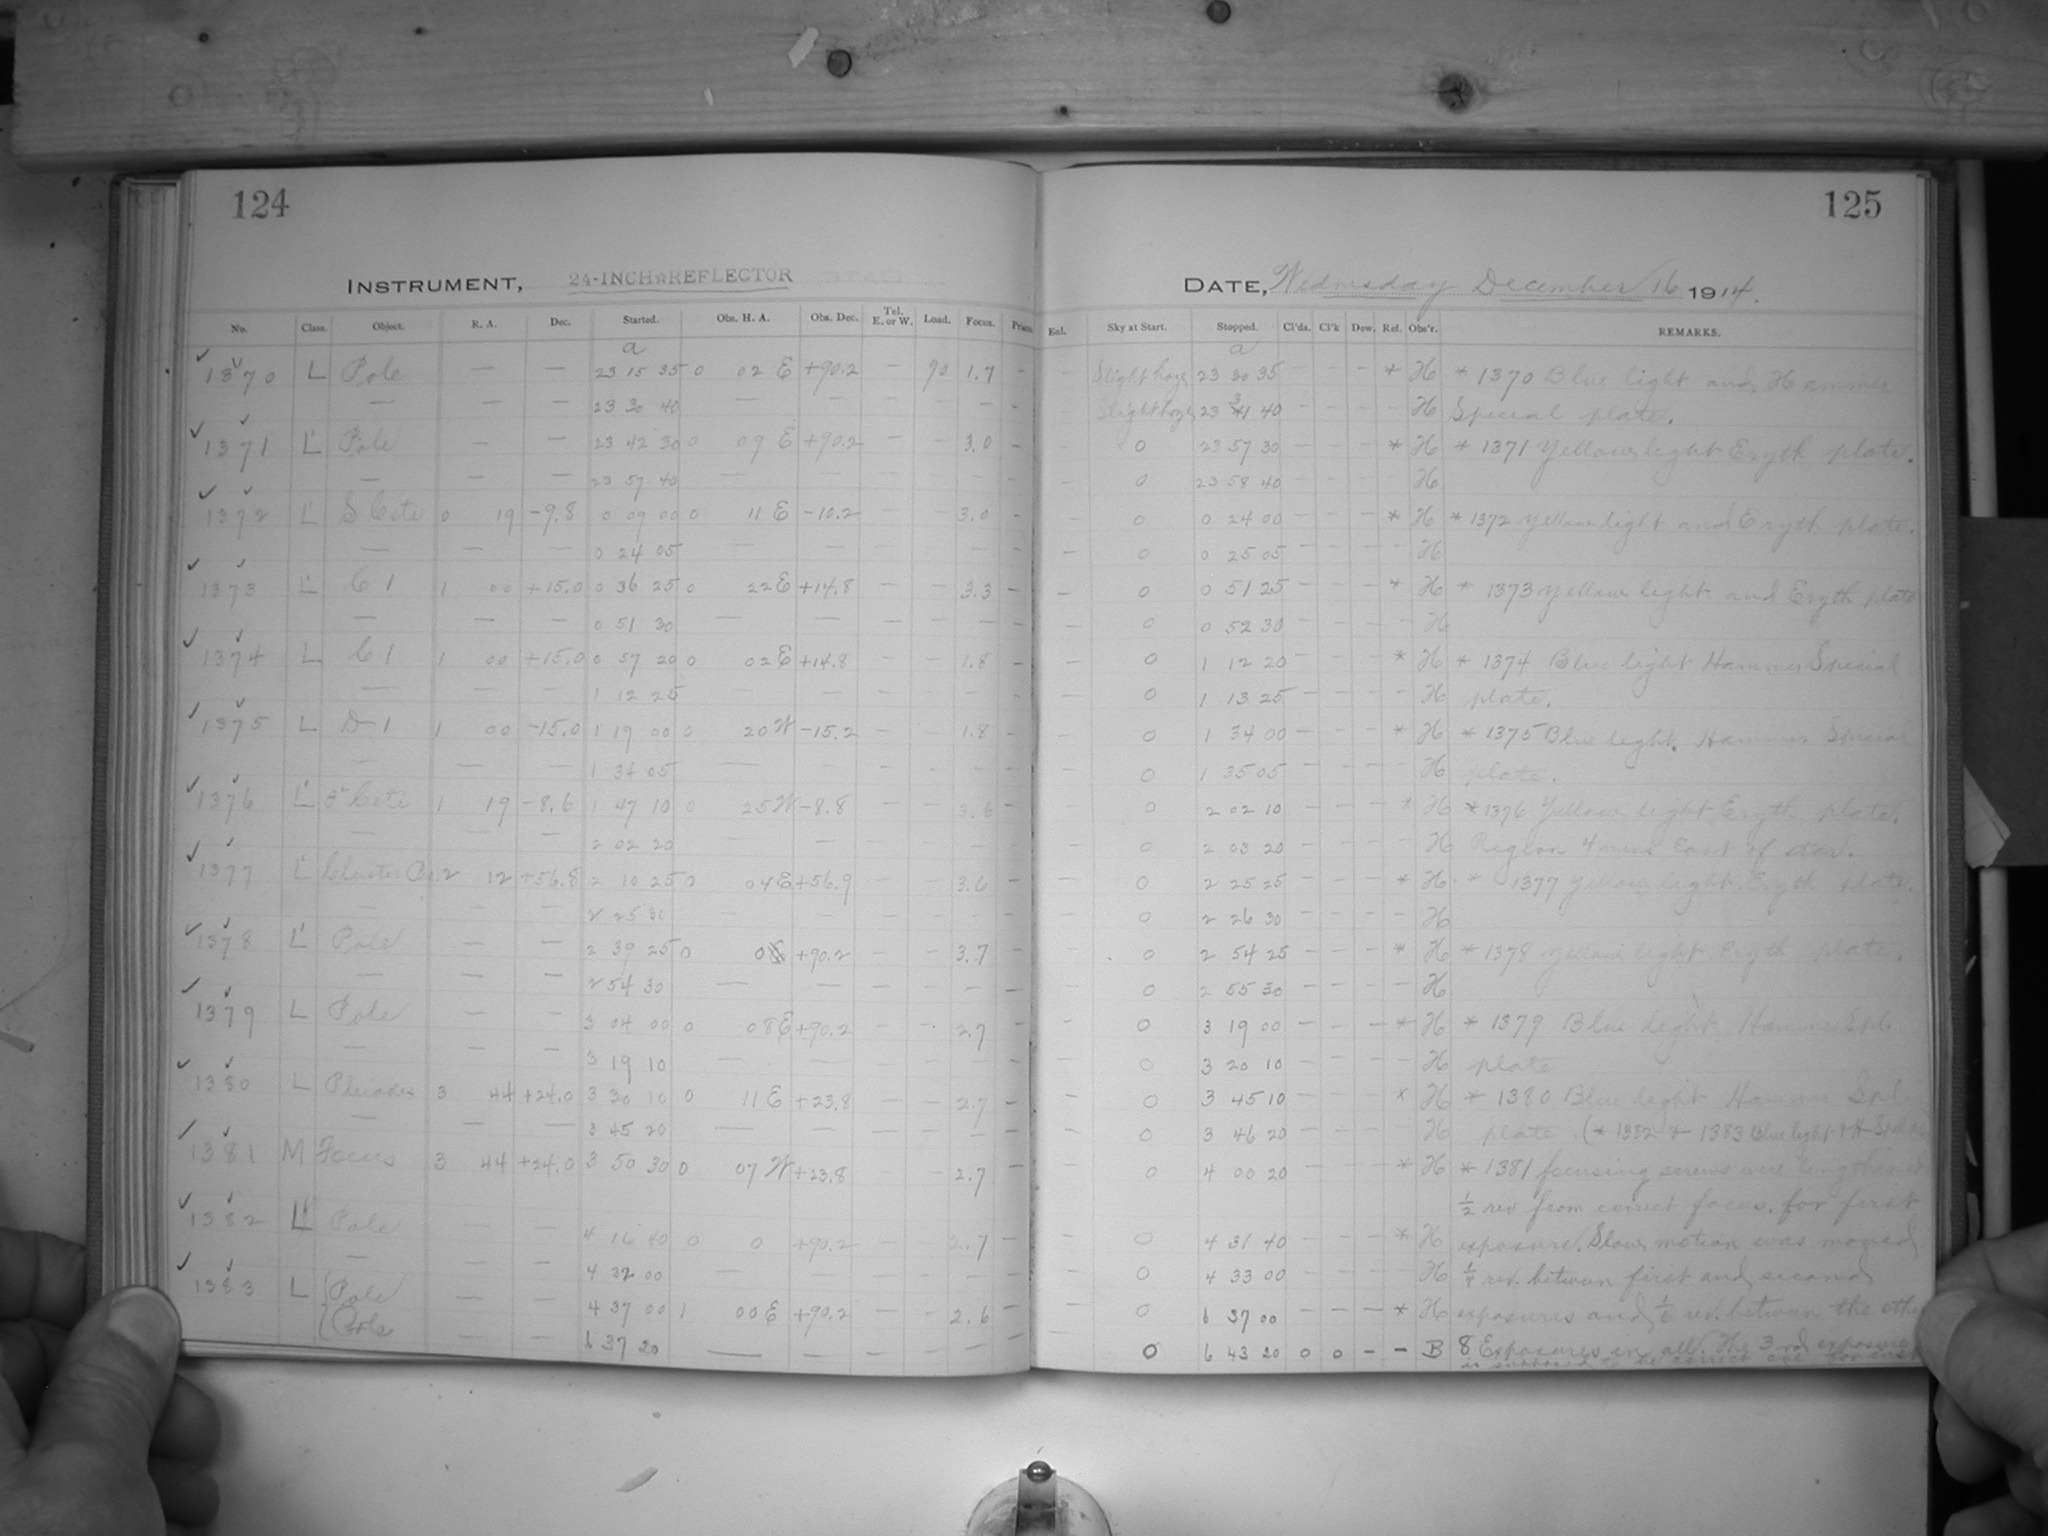 124
INSTRUMENT, 24-INCH REFLECTOR
No. Class. Object. R. A. Dec. Started. Obs. H. A. Obs. Dec. Tel. E. or W. Load. Focus.
a
1370 L Pole — — 23 15 35 0 02 E +90.2 — 90 1.7 –
— 23 30 40 — — – – – –
1371 L' Pole — — 23 42 30 0 09 E +90.2 — – 3.0 –
— — — 23 57 40 — — – – – –
1372 L' S Ceti 0 19 -9.8 0 09 00 0 11 E -10.2 — – 3.0 –
— — — 0 24 05 — — – – – –
1373 L' C 1 1 00 +15.0 0 36 25 0 22 E +14.8 — – 3.3 –
— — — 0 51 30 — — – – – –
1374 L C 1 1 00 +15.0 0 57 20 0 02 E +14.8 — – 1.8 –
— — — 1 12 25 — — – – – –
1375 L D-1 1 00 -15.0 1 19 00 0 20 W -15.2 — – 1.8 –
— — — 1 34 05 — — – – – –
1376 L' Ceti 1 19 -8.6 1 47 10 0 25 W -8.8 — – 3.6 –
— — — 2 02 20 — — – – – –
1377 L' Cluster 2 12 +56.8 2 10 25 0 04 E +56.9 — – 3.6 –
— — — 2 25 30 — — – – – –
1378 L' Pole — — 2 39 25 0 +90.2 — – 3.7 –
— — — 2 54 30 — — – – – –
1379 L Pole — — 3 04 00 0 08 E +90.2 — – 2.7 –
— — — 3 19 10 — — – – – –
1380 L Pleiades 3 44 +24.0 3 30 10 0 11 E +23.8 — – 2.7 –
— — — 3 45 20 — — – – – –
1381 M Focus 3 44 +24.0 3 50 30 0 07 W +23.8 — – 2.7 –
1382 L Pole — — 4 16 40 0 0 +90.2 — – 2.7 –
— — — 4 32 00 — — – – – –
1383 L Pole — — 4 37 00 1 00 E +90.2 — – 2.6 –
Pole — — 6 37 20 — — – – – –
125
DATE, Wednesday December 16 1914.
Sky at Start. Stopped. Cl'ds. Cl'k Dew. Ref. Obs'r. REMARKS.
a
Slight haze 23 30 35 – – – * H * 1370 Blue light and Hammer
Slight haze 23 31 40 – – – H Special plate.
0 23 57 30 – – – * H * 1371 Yellow light Eryth plate.
0 23 58 40 – – – H
0 0 24 00 – – – * H * 1372 Yellow light and Eryth plate.
0 0 25 05 – – – – H
– 0 0 51 25 – – – * H * 1373 Yellow light and Eryth plate
– 0 0 52 30 – – – – H
– 0 1 12 20 – – – * H * 1374 Blue light Hammer Special
– 0 1 13 25 – – – – H plate.
– 0 1 34 00 – – – * H * 1375 Blue light. Hammer Special
– 0 1 35 05 – – – H plate.
– 0 2 02 10 – – – * H * 1376 Yellow light Eryth plate.
– 0 2 03 20 – – – H Region 4 mins East of star.
– 0 2 25 25 – – – * H * 1377 Yellow light Eryth plate.
– 0 2 26 30 – – – – H
– 0 2 54 25 – – – * H * 1378 Yellow light Eryth plate.
– 0 2 55 30 – – – – H
– 0 3 19 00 – – – * H * 1379 Blue light Hammer Spl.
– 0 3 20 10 – – – – H plate
– 0 3 45 10 – – – * H * 1380 Blue light Hammer Spl.
– 0 3 46 20 – – – – H plate. (* 1382 & 1383 Blue light & H
– 0 4 00 20 – – – * H * 1381 focusing screws were lengthened
1/2 rev from correct focus. for first
– 0 4 31 40 – – – * H exposure. Slow motion was moved
– 0 4 33 00 – – – – H 1/4 rev. between first and second
– 0 6 37 00 – – – * H exposures and rev. between the other
0 6 43 20 0 0 – – B 8 Exposures in all. The 3rd exposure
is supposed to be correct one